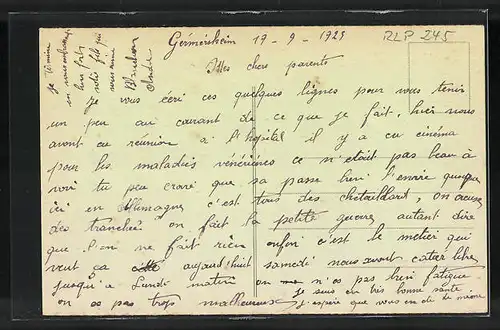 Germersheim 17-9-1925
RLP 245
Mes chers parents
Je vous écri ces quelques lignes pour vous tenir
un peu au courant de ce que je fait, hier nous
avont eu réunion a l'hopital il y a eu cinéma
pour les maladies vénériennes ce n'etait pas beau à
voir tu peu croire que sa passe bien l'envie quoique
ici en Allemagne c'est tous des
des tranchées on fait la petite guerre autant dire
que l'on ne fait rien enfin c'est le metier qui
veut ça aujourd'huit samedi nous avont cartier libre
jusqu'à Lundi matin on n'es pas bien fatigué
on es pas trop malheureux je suis en très bonne santé
j'espère que vous en de meme
Je termine
en vous embrassant
bien fort
votre fils qui
vous aime